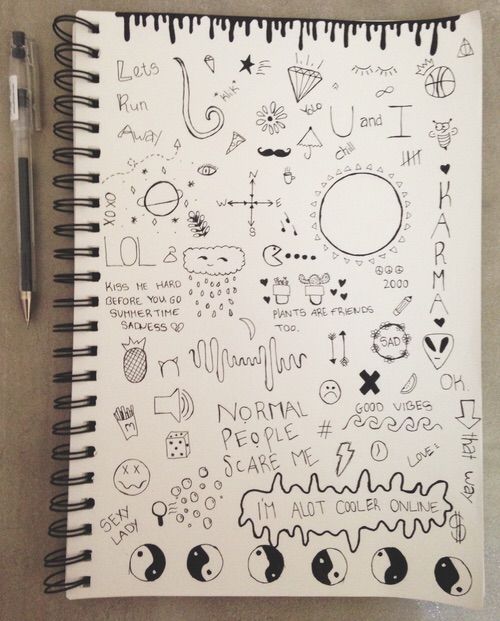 Lets
Run
Away
*wiK*
YOLO
U and I
chill
N
W E
S
XOXO
LOL
KARMA
2000
KISS ME HARD
BEFORE YOU GO
SUMMERTIME
SADNESS
PLANTS ARE FRIENDS
TOO.
SAD
OK.
GOOD VIBES
NORMAL
PEOPLE
SCARE ME
#
that way
LOVE:
I'M ALOT COOLER ONLINE
$
SEXY
LADY